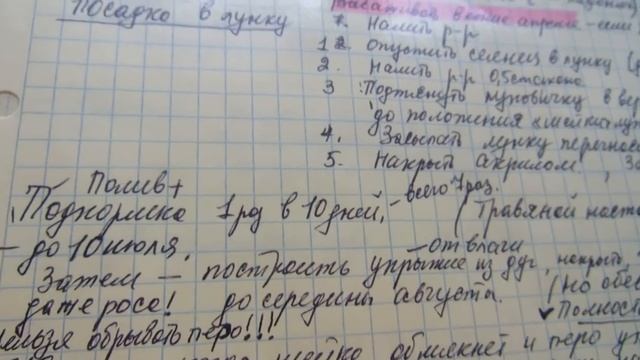 Посадка в лунку
высаживать в конце апреля - если
Налить р-р
1 2. опустить сеянец в лунку
2. Налить р-р 0,5 стакана
3. Подтянуть луковичку в вер
до положения
4. Засыпать лунку перегное
5. Накрыть акрилом, За
Полив +
Подкормка 1 раз в 10 дней, - всего 7 раз.
(Травяной наст
- до 10 июля.
- от влаги
Затем - построить укрытие из дуг, накрыть,
даже росе! до середины августа. (Но обес
✓ Полнос
нельзя обрывать перо!!!
шейка обмякнет и перо у